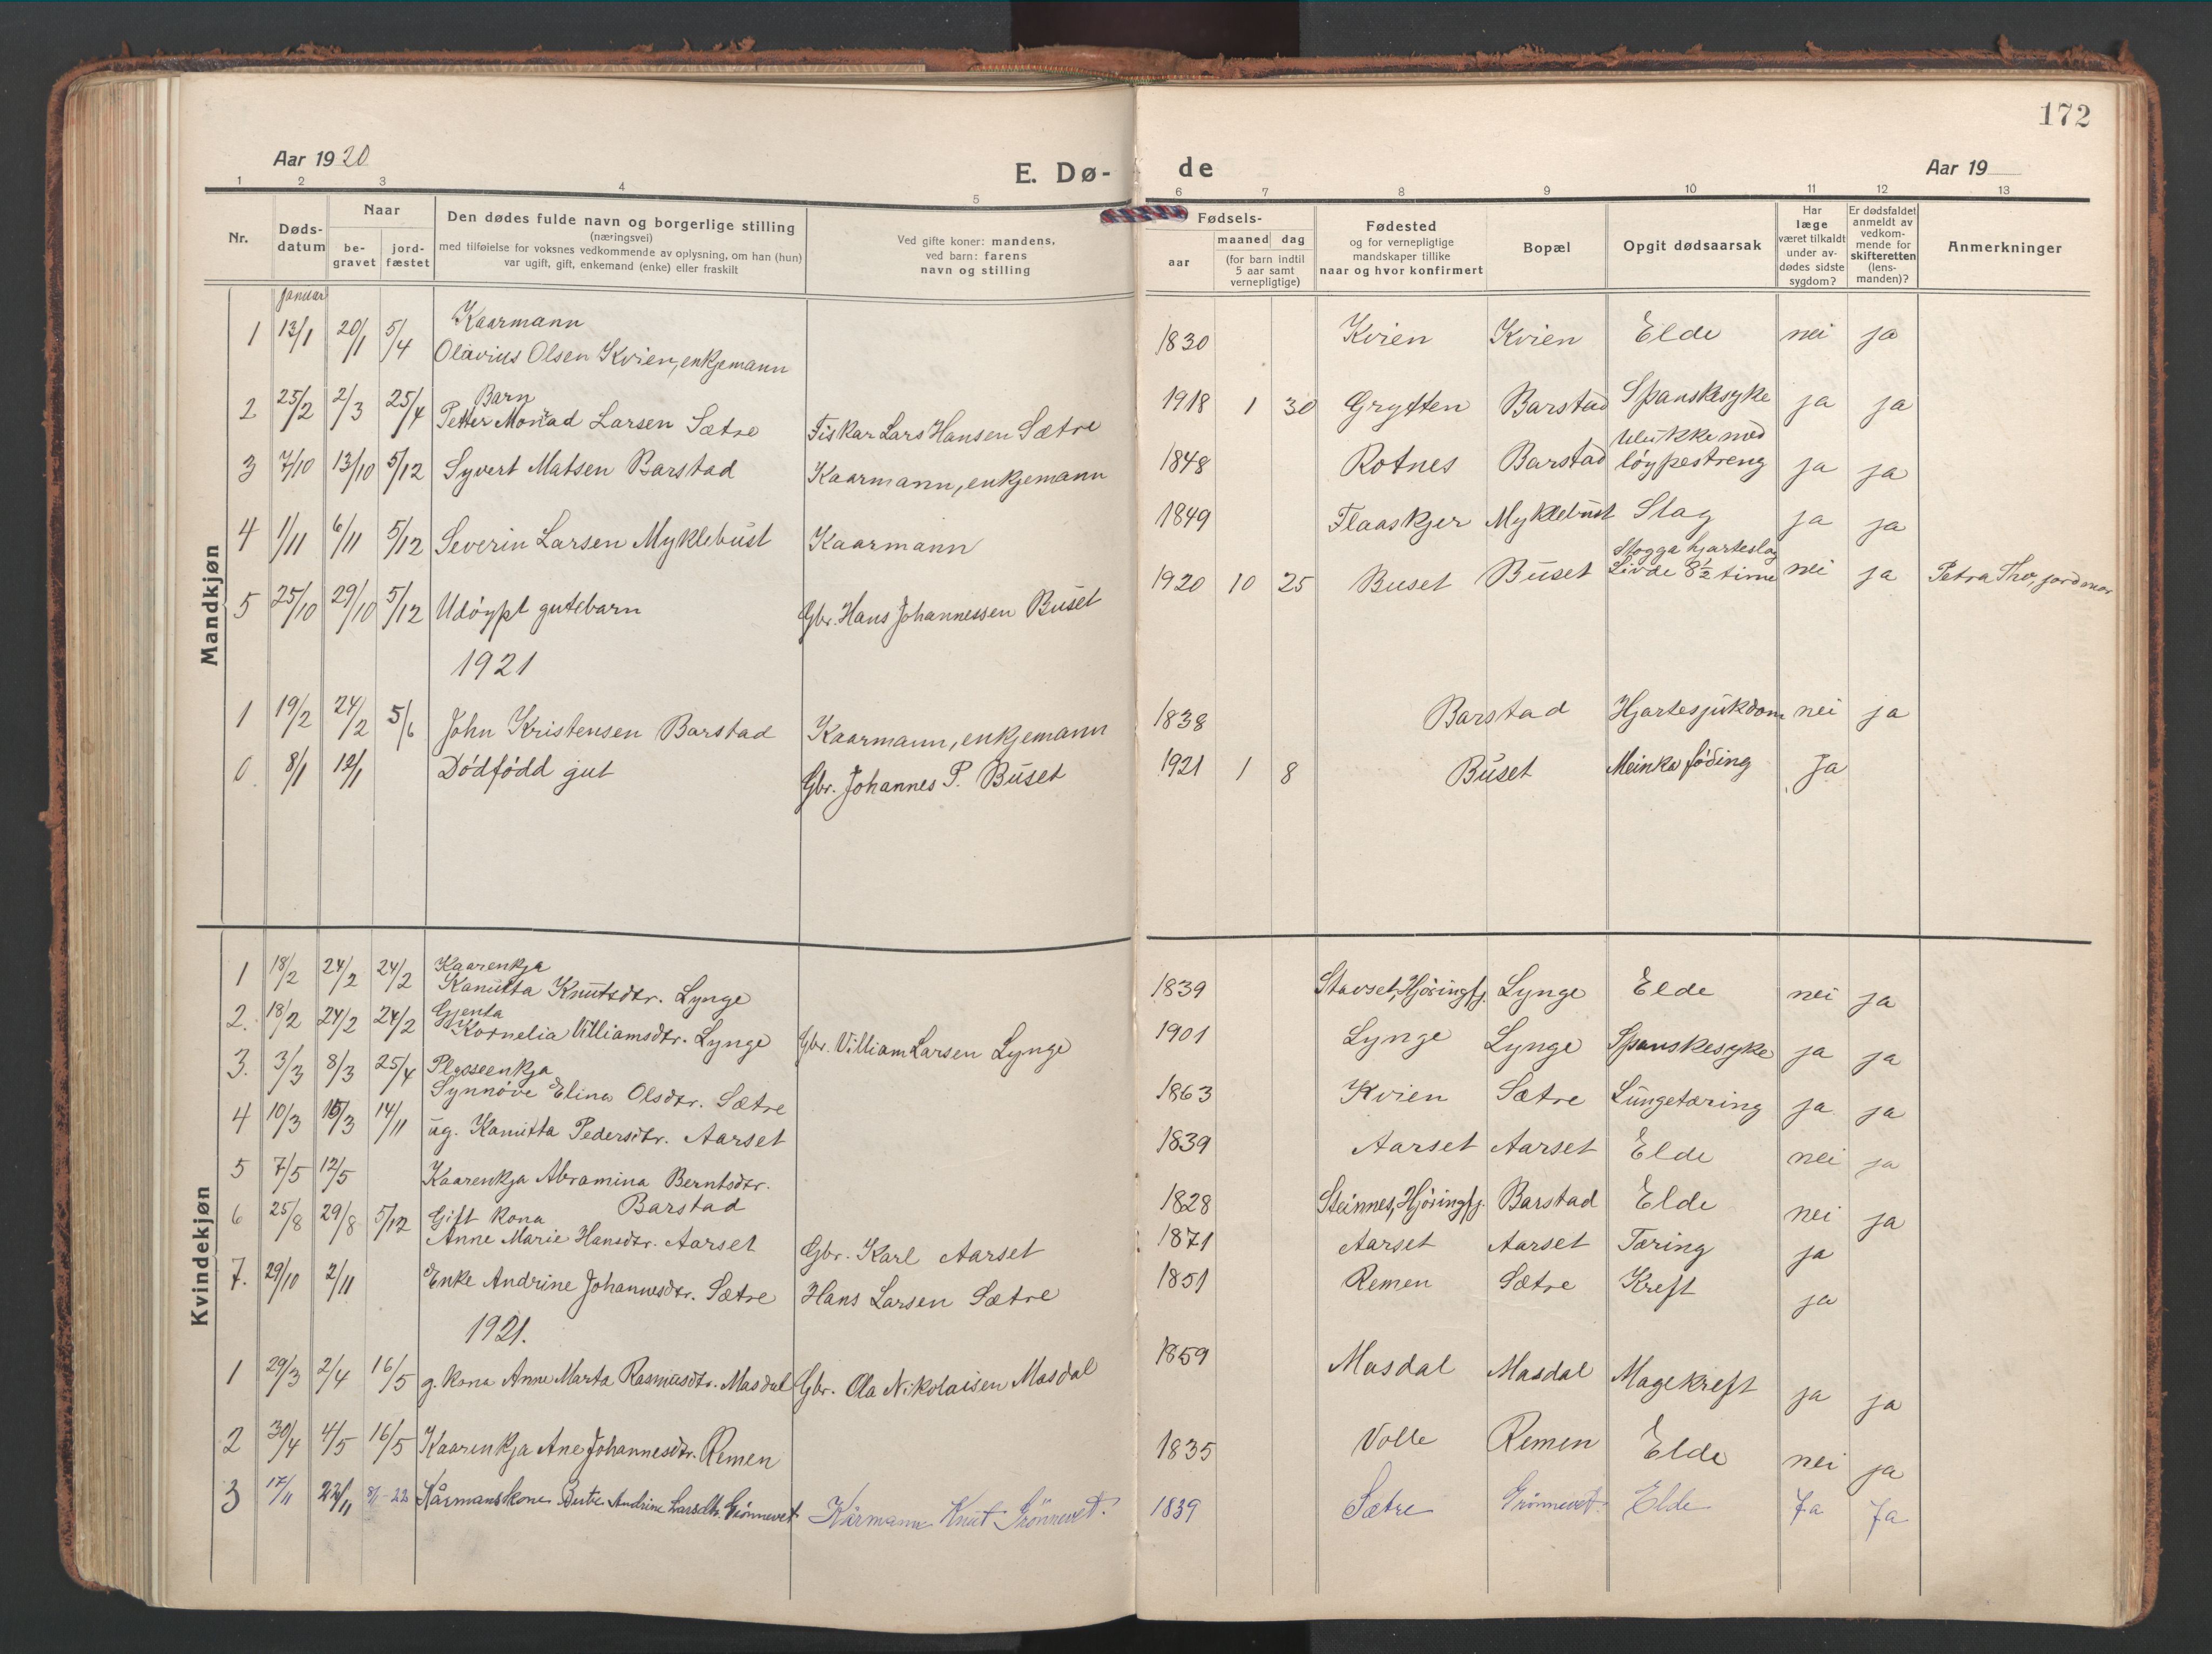 172
Aar 1920
E. Dø-
de
Aar 19
1 2 3 4 5 6 7 8 9 10 11 12 13
Nr.
Døds-
datum
Naar
be-
gravet
jord-
fæstet
Den dødes fulde navn og borgerlige stilling
(næringsvei)
med tilføielse for voksnes vedkommende av oplysning, om han (hun)
var ugift, gift, enkemand (enke) eller fraskilt
Ved gifte koner: mandens,
ved barn: farens
navn og stilling
Fødsels-
aar
maaned dag
(for barn indtil
5 aar samt
vernepligtige)
Fødested
og for vernepligtige
mandskaper tillike
naar og hvor konfirmert
Bopæl
Opgit dødsaarsak
Har
læge
været tilkaldt
under av-
dødes sidste
sygdom?
Er dødsfaldet
anmeldt av
vedkom-
mende for
skifteretten
(lens-
manden)?
Anmerkninger
Mandkjøn
Januar
Kaarmann
1 13/1 20/1 5/4 Olavius Olsen Kvien, enkjemann 1830 Kvien Kvien Elde nei ja
Barn
2 25/2 2/3 25/4 Petter Monrad Larsen Sætre Fiskar Lars Hansen Sætre 1918 1 30 Grytten Barstad Spanskesyke ja ja
Ulukke med
3 7/10 13/10 5/12 Syvert Matsen Barstad Kaarmann, enkjemann 1848 Rotnes Barstad løypestreng ja ja
4 1/11 6/11 5/12 Severin Larsen Myklebust Kaarmann 1849 Flaaskjer Myklebust Slag ja ja
Stogga hjarteslag
5 25/10 29/10 5/12 Udøypt gutebarn Gbr. Hans Johannessen Buset 1920 10 25 Buset Buset Livde 8½ time nei ja Petra Tho, jordmor
1921
1 19/2 24/2 5/6 John Kristensen Barstad Kaarmann, enkjemann 1838 Barstad Hjartesjukdom nei ja
0. 8/1 12/1 Dødfødd gut Gbr. Johannes P. Buset 1921 1 8 Buset Meinka føding Ja
Kvindekjøn
Kaarenkja
1 18/2 24/2 24/2 Kanutta Knutsdtr. Lynge 1839 Stavset, Hjøringfj. Lynge Elde nei ja
Gjenta
2. 18/2 24/2 24/2 Kornelia Villiamsdtr. Lynge Gbr. Villiam Larsen Lynge 1901 Lynge Lynge Spanskesyke ja ja
Plasseenkja
3. 3/3 8/3 25/4 Synnøve Elina Olsdtr. Sætre 1863 Kvien Sætre Lungetæring ja ja
4 10/3 15/3 14/11 ug. Kanutta Pedersdtr. Aarset 1839 Aarset Aarset Elde nei ja
5 7/5 12/5 Kaarenkja Abramina Berntsdtr.
Barstad 1828 Steinnes, Hjøringfj. Barstad Elde nei ja
Gift kona
6 25/8 29/8 5/12 Anne Marie Hansdtr. Aarset Gbr. Karl Aarset 1871 Aarset Aarset Tæring ja
7. 29/10 2/11 Enke Andrine Johannesdtr. Sætre Hans Larsen Sætre 1851 Remen Sætre Kreft ja
1921.
1 29/3 2/4 16/5 g. kona Anne Marta Rasmusdtr. Masdal Gbr. Ola Nikolaisen Masdal 1859 Masdal Masdal Magekreft ja ja
2 30/4 4/5 16/5 Kaarenkja Ane Johannesdtr. Remen 1835 Volle Remen Elde nei ja
3 17/11 22/11 8/1-22 Kårmanskone Berte Andrine Larsdtr. Grönnevet Kårmann Knut Grönnevet. 1839 Sætre Grönnevet. Elde Ja Ja